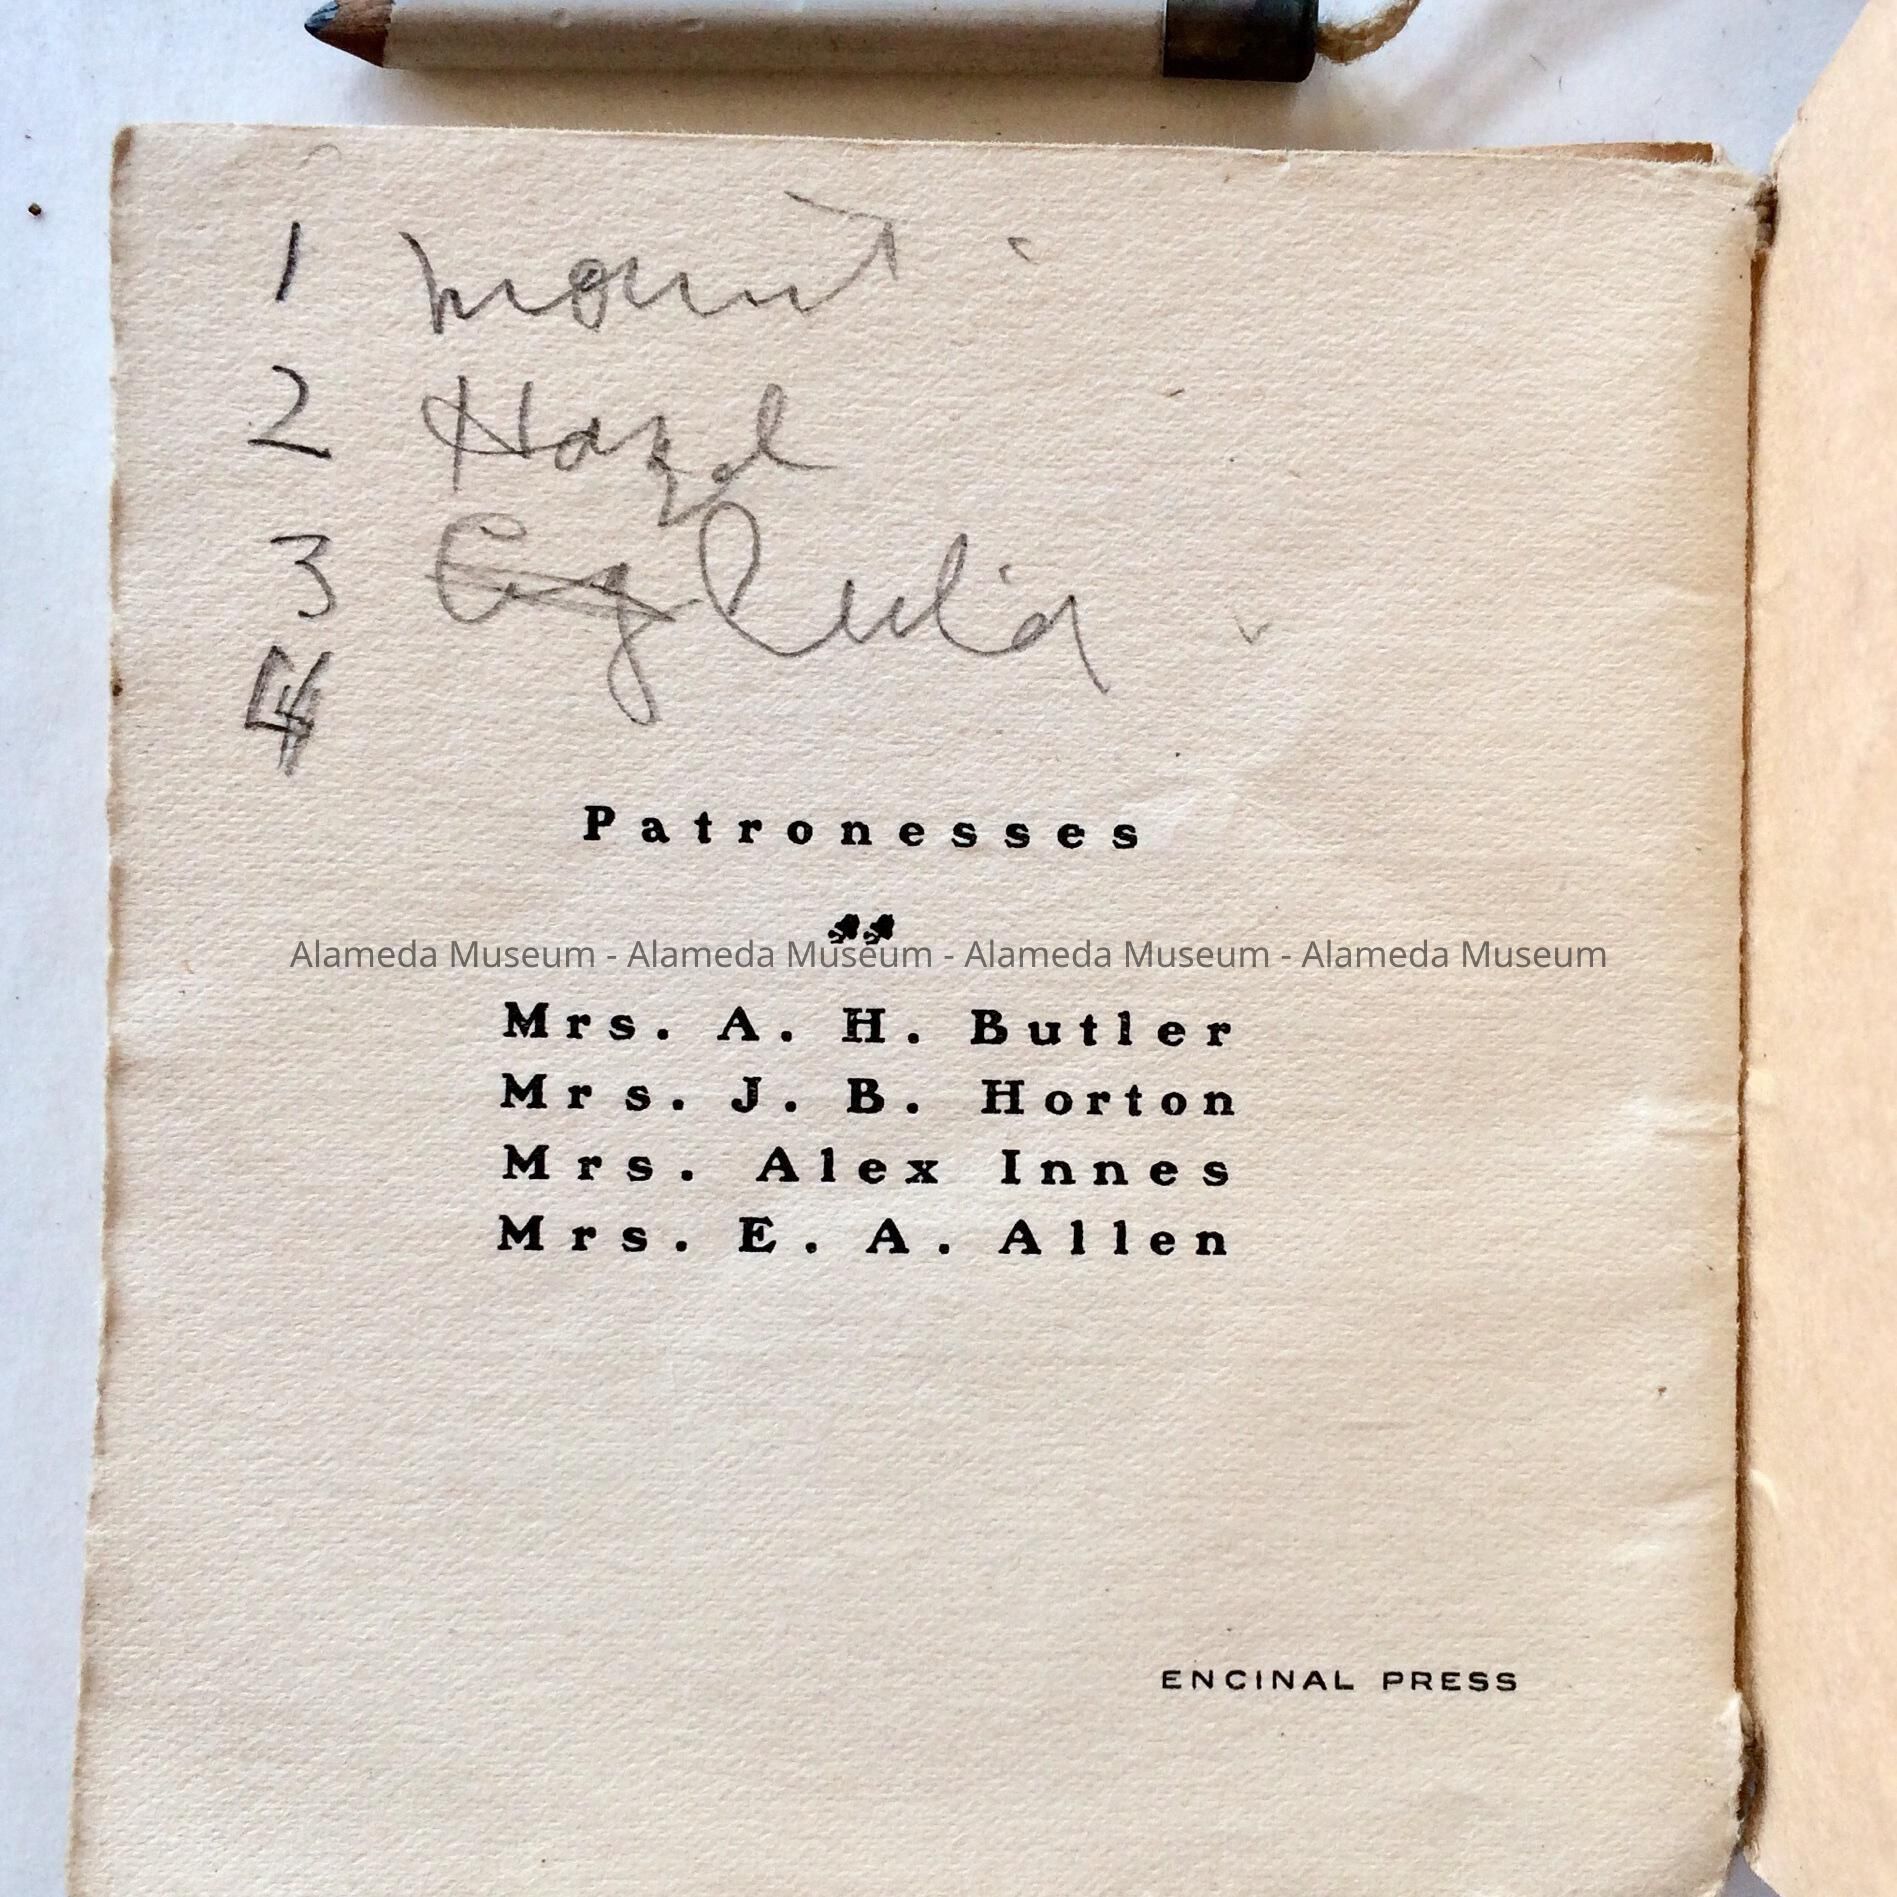 1 Mount
2 Hazel
3
4
Patronesses
Alameda Museum - Alameda Museum - Alameda Museum - Alameda Museum
Mrs. A. H. Butler
Mrs. J. B. Horton
Mrs. Alex Innes
Mrs. E. A. Allen
ENCINAL PRESS